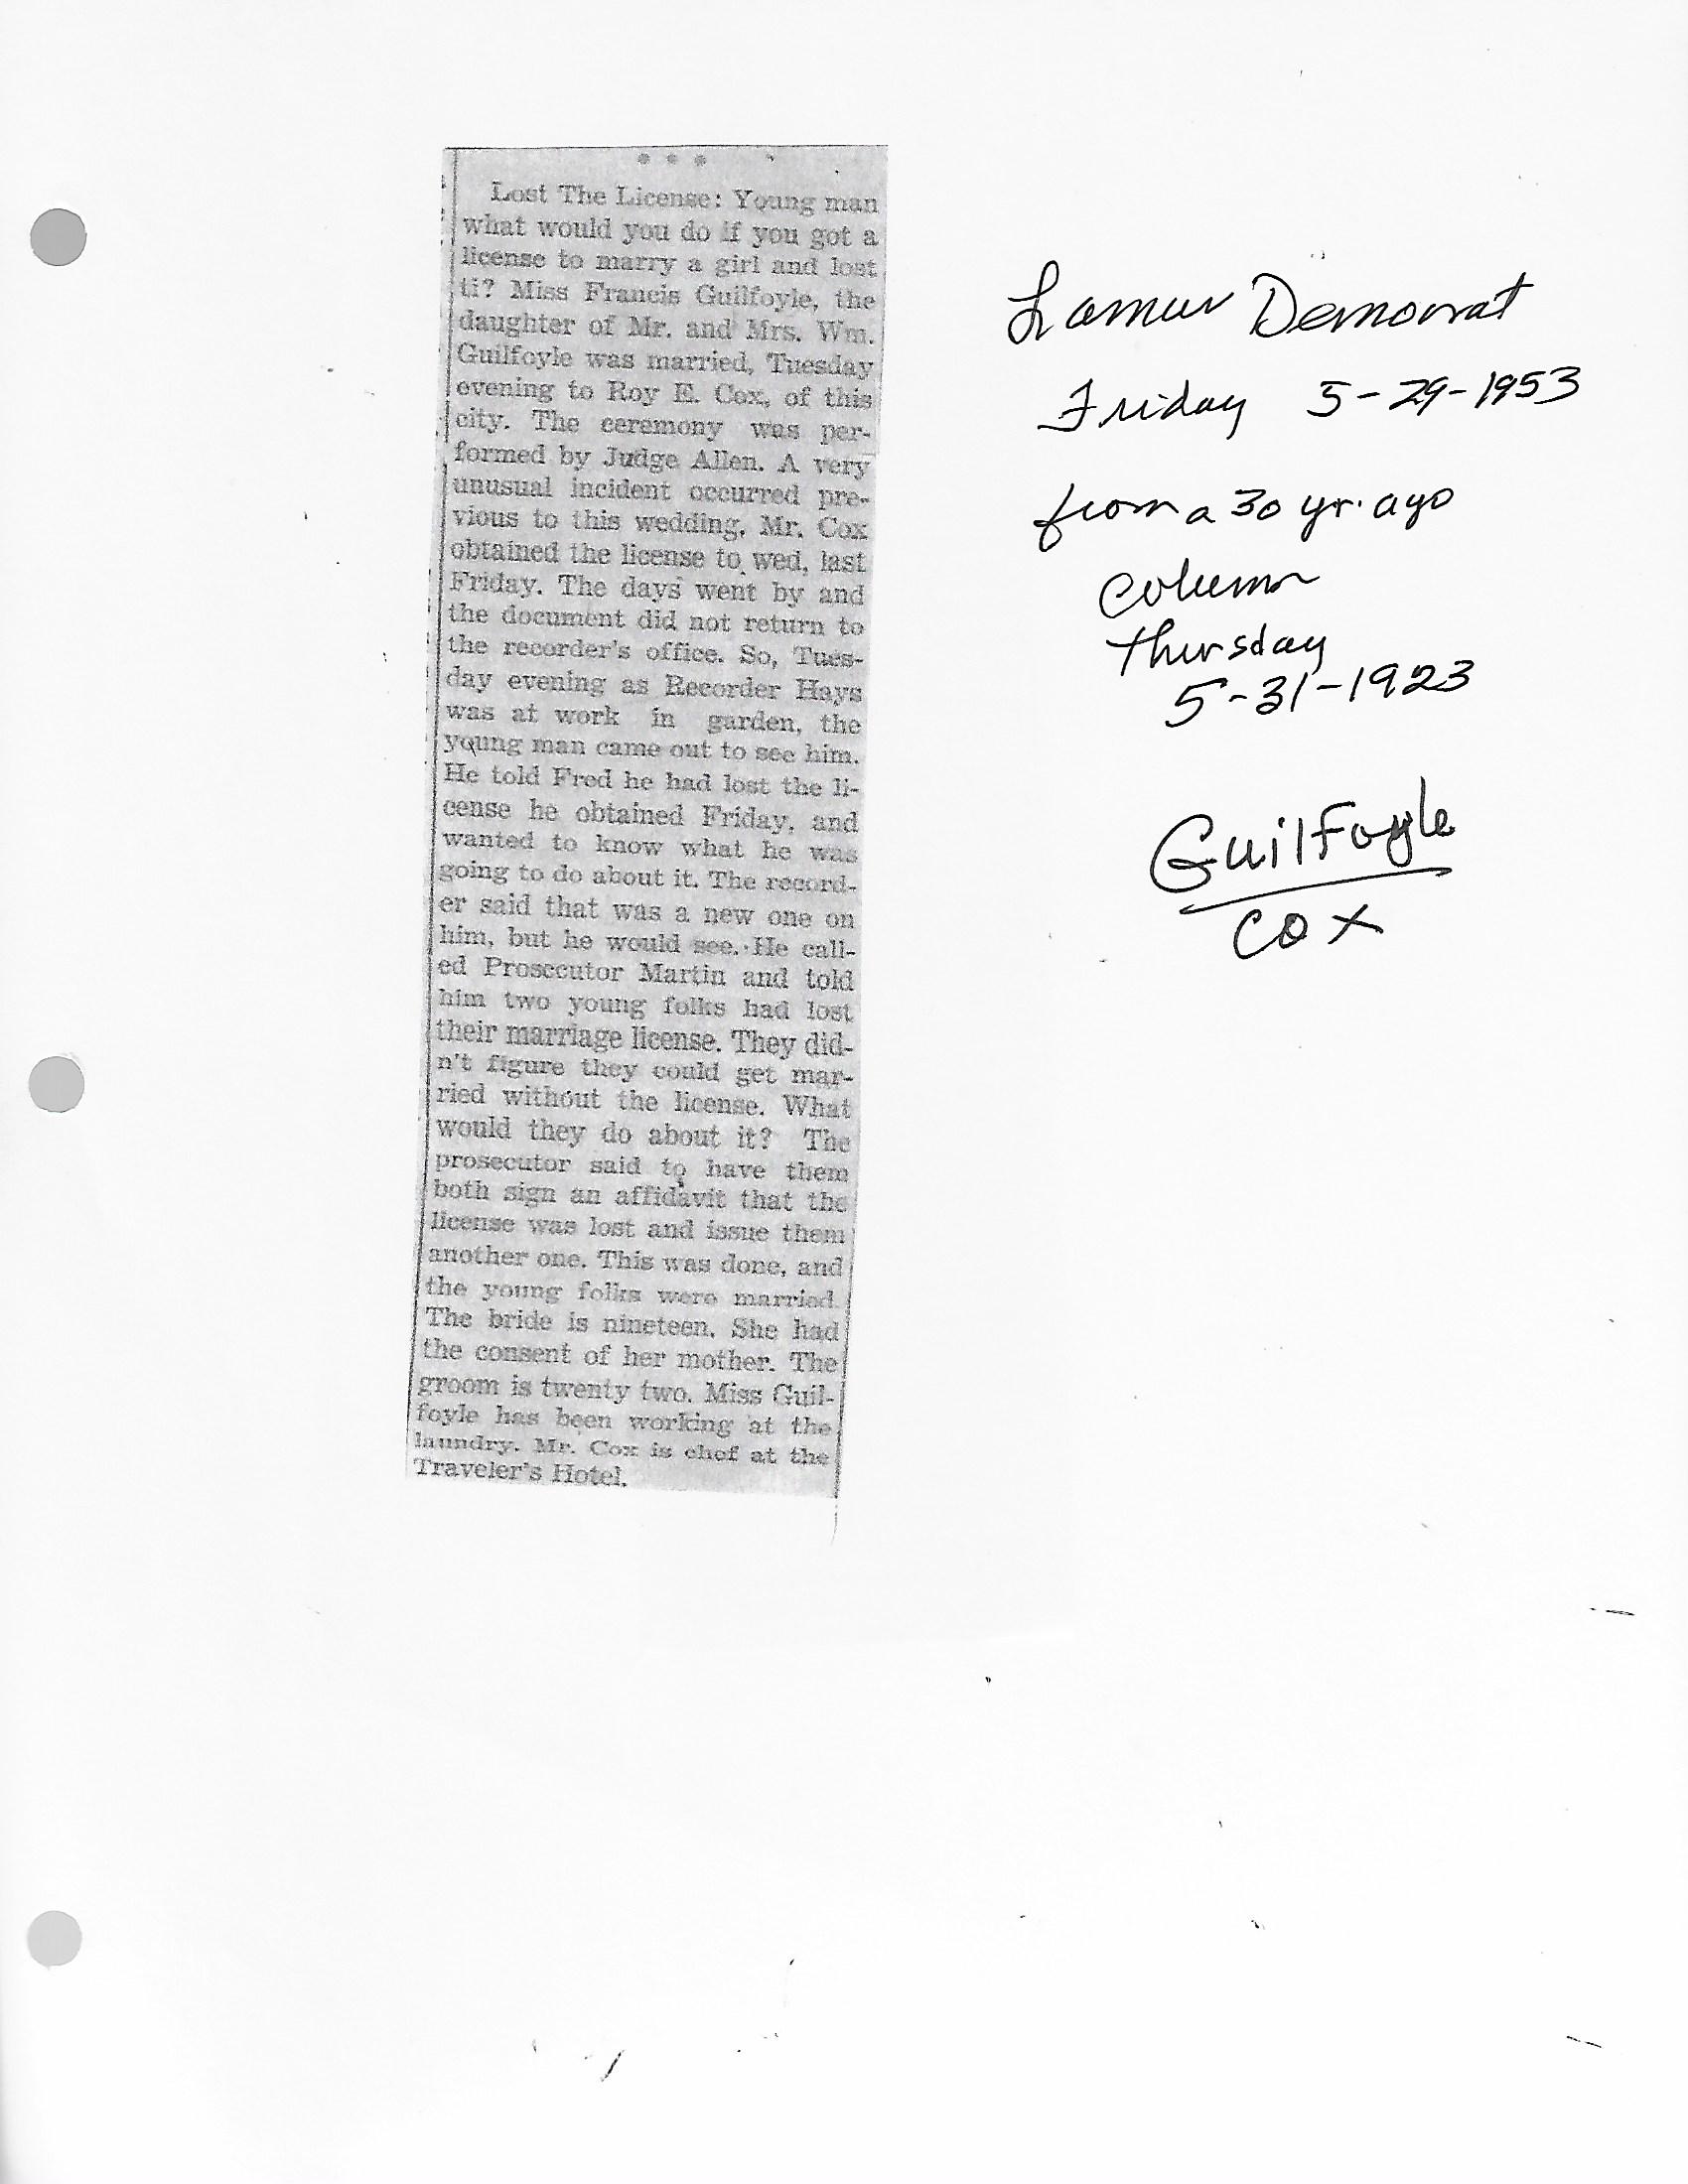 * * *
Lost The License: Young man
what would you do if you got a
license to marry a girl and lost
ti? Miss Francis Guilfoyle, the
daughter of Mr. and Mrs. Wm.
Guilfoyle was married, Tuesday
evening to Roy E. Cox, of this
city. The ceremony was per-
formed by Judge Allen. A very
unusual incident occurred pre-
vious to this wedding, Mr. Cox
obtained the license to wed, last
Friday. The days went by and
the document did not return to
the recorder's office. So, Tues-
day evening as Recorder Hays
was at work in garden, the
young man came out to see him.
He told Fred he had lost the li-
cense he obtained Friday, and
wanted to know what he was
going to do about it. The record-
er said that was a new one on
him, but he would see. He call-
ed Prosecutor Martin and told
him two young folks had lost
their marriage license. They did-
n't figure they could get mar-
ried without the license. What
would they do about it? The
prosecutor said to have them
both sign an affidavit that the
license was lost and issue them
another one. This was done, and
the young folks were married.
The bride is nineteen. She had
the consent of her mother. The
groom is twenty two. Miss Guil-
foyle has been working at the
laundry. Mr. Cox is chef at the
Traveler's Hotel.
Lamar Democrat
Friday 5-29-1953
from a 30 yr. ago
column
thursday
5-31-1923
Guilfoyle
Cox